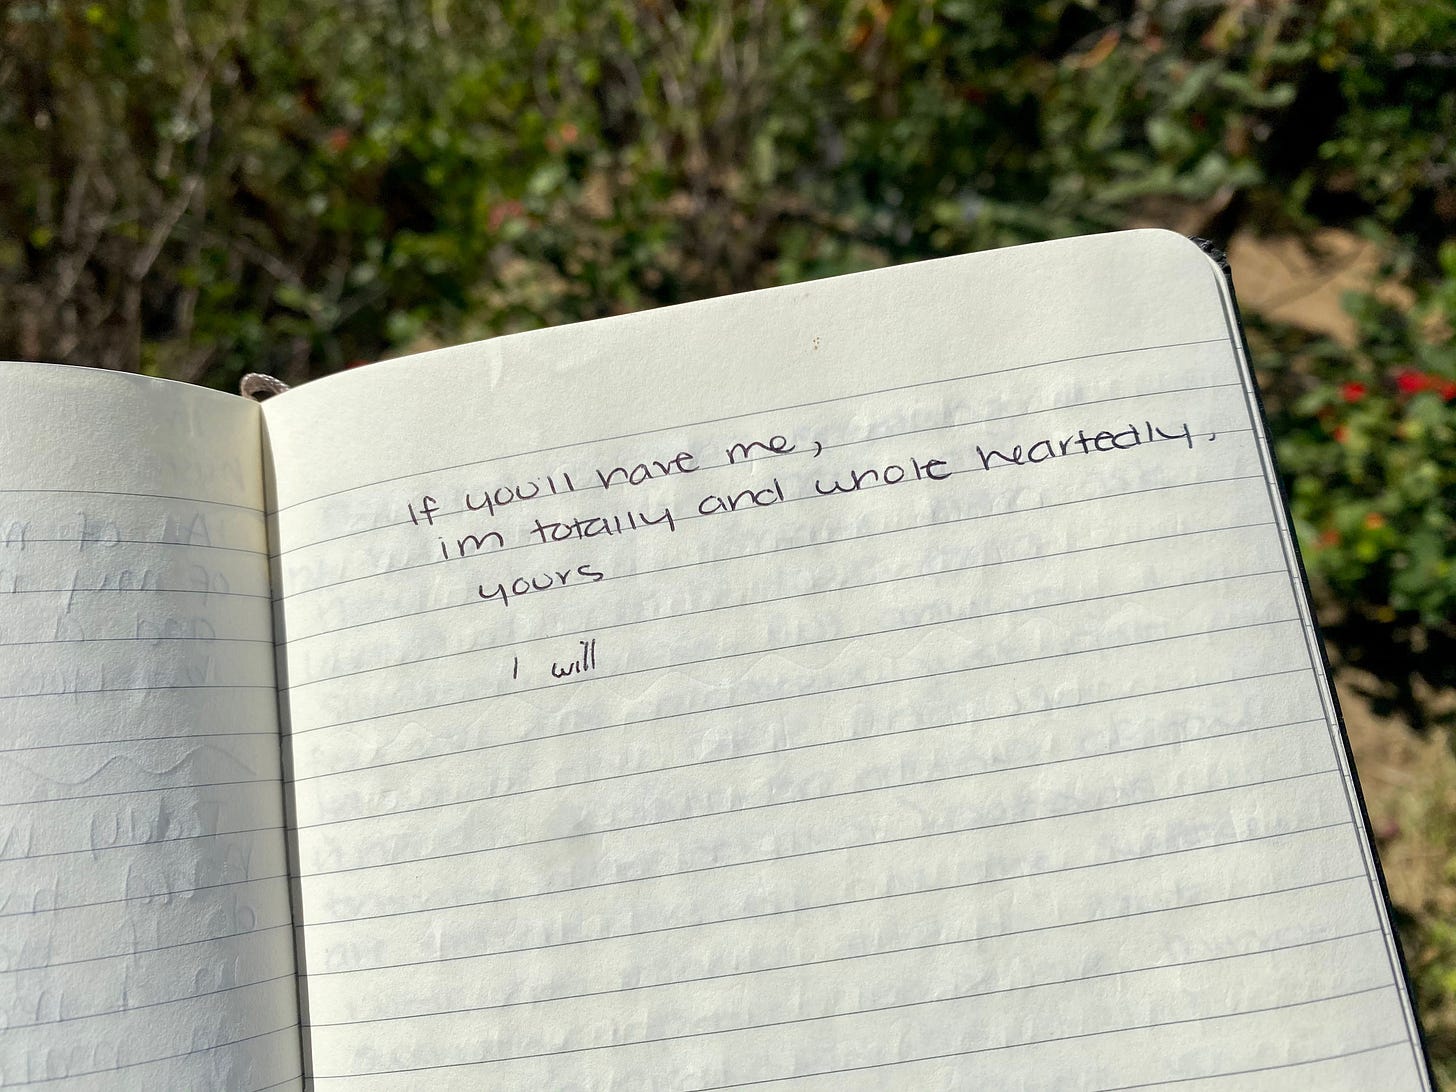 If you'll have me,
im totally and whole heartedly,
yours
I will